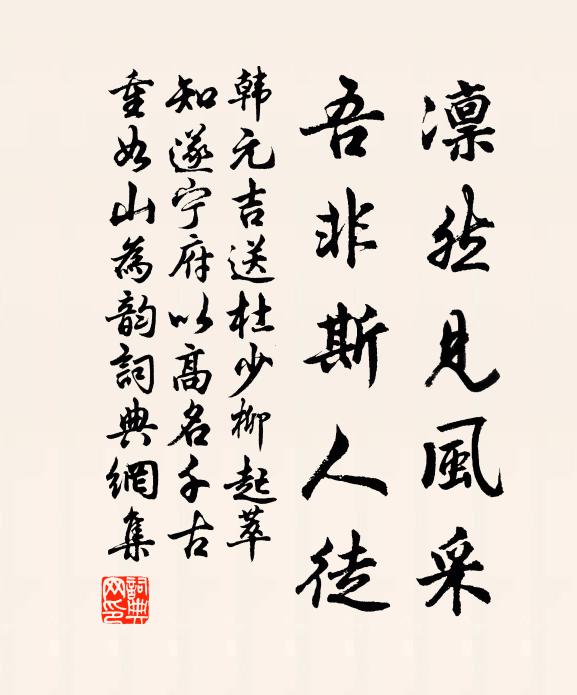 凛然見風采
吾非斯人徒
韓元吉送杜少柳起萃
知遂寧府以高名千古
重如山為韵詞典網集
詞典网印